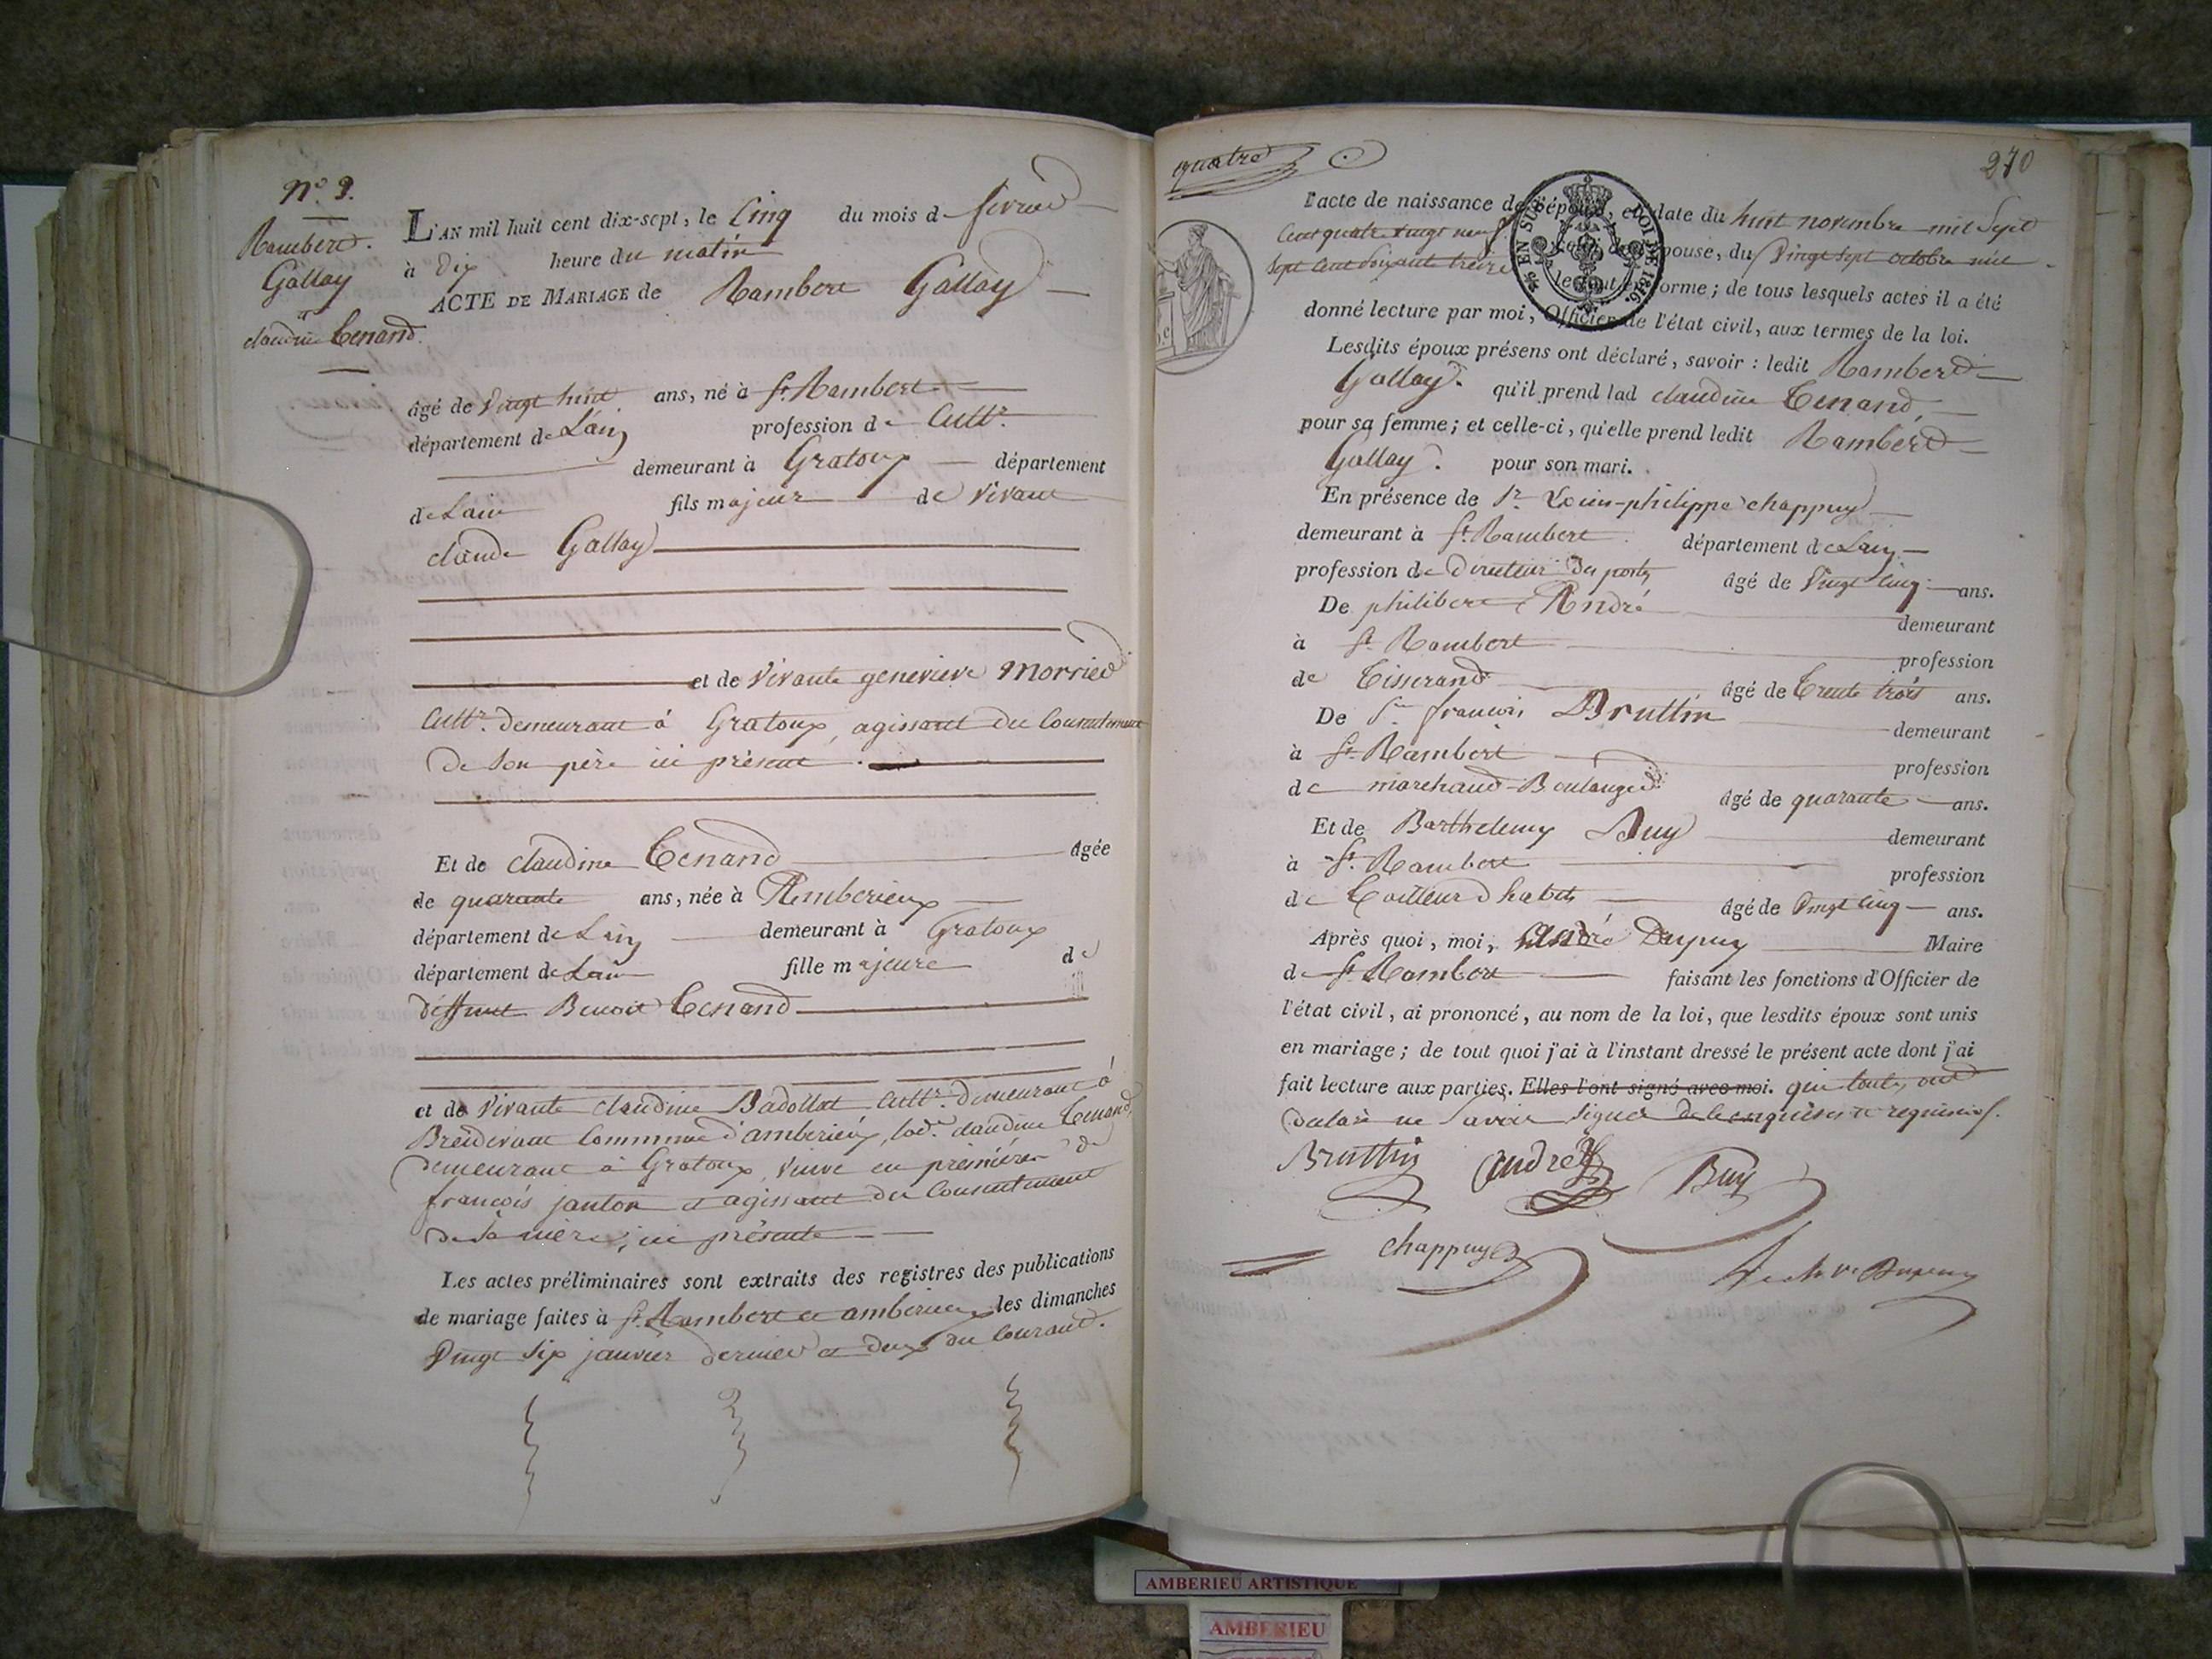 N.° 3.
Rambert
Gallay
et
claudine Tenand.
L'AN mil huit cent dix-sept, le Cinq du mois de fevrier
à Dix heure du matin
ACTE DE MARIAGE de Rambert Gallay
âgé de Vingt huit ans, né à St. Rambert
département de L'ain profession de Cultr.
demeurant à Gratoux département
de Lain fils majeur de vivant
claude Gallay
et de vivante genevieve Morrier
Cultr. demeurant à Gratoux, agissant du Consentement
de Son père ici présent.
Et de claudine Tenand âgée
de quarante ans, née à Amberieux
département de L'ain demeurant à Gratoux
département de Lain fille majeure de
deffunt Benoit Tenand
et de vivante claudine Badollat Cultr. demeurant à
Breidevant Commune d'amberieux, lade. claudine Tenand,
demeurant à Gratoux, veuve en premières de
françois janton et agissant du Consentement
de Sa mère, ici présente
Les actes préliminaires sont extraits des registres des publications
de mariage faites à St. Rambert et amberieux les dimanches
Vingt Six janvier dernier et deux du Courant.
quatre
270
l'acte de naissance de l'époux, en date du huit novembre mil Sept
Cent quatre vingt neuf celui de l'épouse, du Vingt Sept octobre mil
Sept Cent Soixante treize le tout en forme; de tous lesquels actes il a été
EN SUS LOI DE 1816.
donné lecture par moi, Officier de l'état civil, aux termes de la loi.
Lesdits époux présens ont déclaré, savoir : ledit Rambert
Gallay. qu'il prend lad claudine Tenand,
pour sa femme; et celle-ci, qu'elle prend ledit Rambert
Gallay. pour son mari.
En présence de Sr Louis-philippe chappuy
demeurant à St. Rambert département de Lain
profession de Directeur des postes âgé de Vingt Cinq ans.
De philibert André demeurant
à St. Rambert profession
de Tisserand âgé de Trente trois ans.
De Sr. francois Bruttin demeurant
à St. Rambert profession
de marchand-Boulanger âgé de quarante ans.
Et de Barthelemy Buy demeurant
à St. Rambert profession
de Tailleur d'habits âgé de Vingt Cinq ans.
Après quoi, moi, André Dupuy Maire
de St. Rambert faisant les fonctions d'Officier de
l'état civil, ai prononcé, au nom de la loi, que lesdits époux sont unis
en mariage; de tout quoi j'ai à l'instant dressé le présent acte dont j'ai
fait lecture aux parties. Elles l'ont signé avec moi. qui toutes ont
declaré ne Savoir Signer de ce enquises et requises.
Bruttin andre Buy
chappuy
Dupuy
AMBERIEU ARTISTIQUE
AMBERIEU